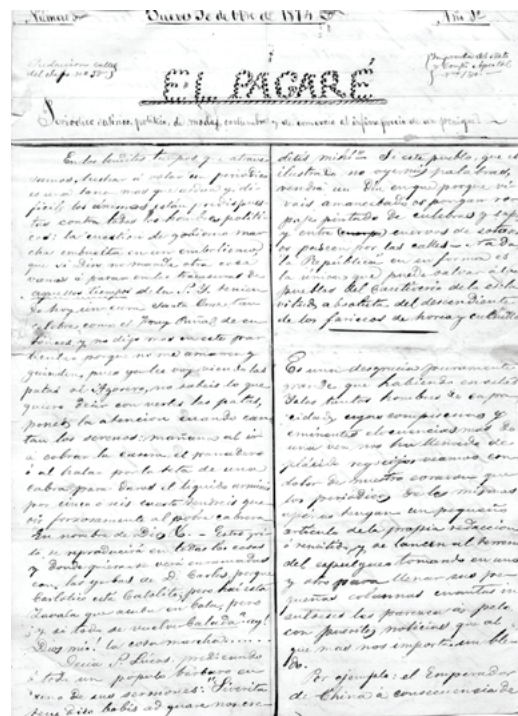 Número 3
Jueves de 8bre de 1874
Año 1º
Redaccion calle
del
Imprenta del
EL PAGARÉ
Periodico satírico, politico, de modas, costumbres y de comercio al infimo precio de un
En los benditos tiempos q. atrave-
samos, luchar ó estar en periodico
es una tarea mas que ardua y di-
ficil, los ánimos están predispues-
tos contra todos los hombres politi-
cos; la cuestion de gobierno mar-
cha embuelta en un embolismo
que si dios no manda otra cosa
vamos á parar en las
aquellos tiempos de la S. Y. tenien-
do hoy un cura Santa Cruz, tan
celebre como el Fray de en-
tonces, y no digo mas en este par-
ticular porque no me amarren y
guinden, pues ya les voy viendo las
patas al Agorero, no sabeis lo que
quiero decir con verle las patas,
poned la atencion cuando can-
tan los serenos: mañana al ir
á cobrar la casera, el panadero
ó al halar por la teta de una
cabra para daros el liquido
por cinco ó seis cuartos teneis que
oir forzosamente al pobre cabrero
En nombre de Dios &. - Este gri-
to se reproducirá en todas las casas
y donde quiera se verá
con las yerbas de D. Carlos, porque
Carlotie esta Catolito, pero hai esta
Zavala que acaba en bala, pero
y si todo se vuelve balada ¡uy!
Dios mio! la cosa marcha.....
Decia S. Lucas predicando
á todo un populo bárbaro en
uno de sus sermones: "Siverita
ditis mihi". Si este pueblo, que es
ilustrado no oye mis palabras,
vendrá un dia en que porque vi-
vais amancebados os pongan ro-
pajes pintado de culebras y sapos
y entre cuervos de sotanas
os paseen por las calles -
la República en su forma es
la unica que puede salvar á los
pueblos del cautiverio de la escla-
vitud absoluta, del descendiente
de los fariseos de horca y cuchillo
Es una desgracia sumamente
grande que habiendo en esta
Islas tantos hombres de capa-
cidad y cuyas composiciones y
eminentes elocuencias mas de
una vez nos han llenado de
plácido regocijo, veamos con
dolor de nuestro corazon que
los periodicos de las mismas
apénas tengan un pequeño
articulo de la propia redaccion
ó remitido, y se lancen al terreno
del espulgue tomando en uno
y otro para llenar sus pe-
queñas columnas cuantos in-
sulseces les paresca á pelo
con puertos noticias que al
que mas nos importa un ble-
do.
Por ejemplo: el Emperador
de China á consecuencia de